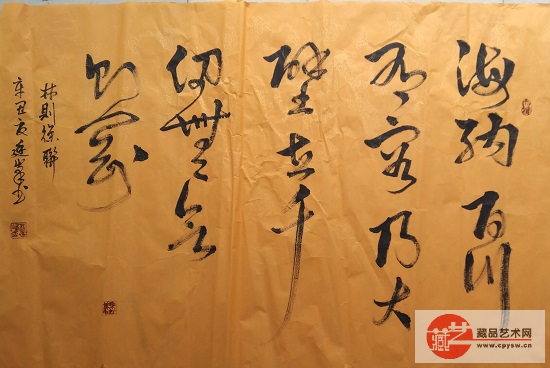 海納百川
有容乃大
壁立千
仞無欲
則剛
林則徐聯
辛丑夏
藏艺
藏品艺术网
www.cpysw.cn